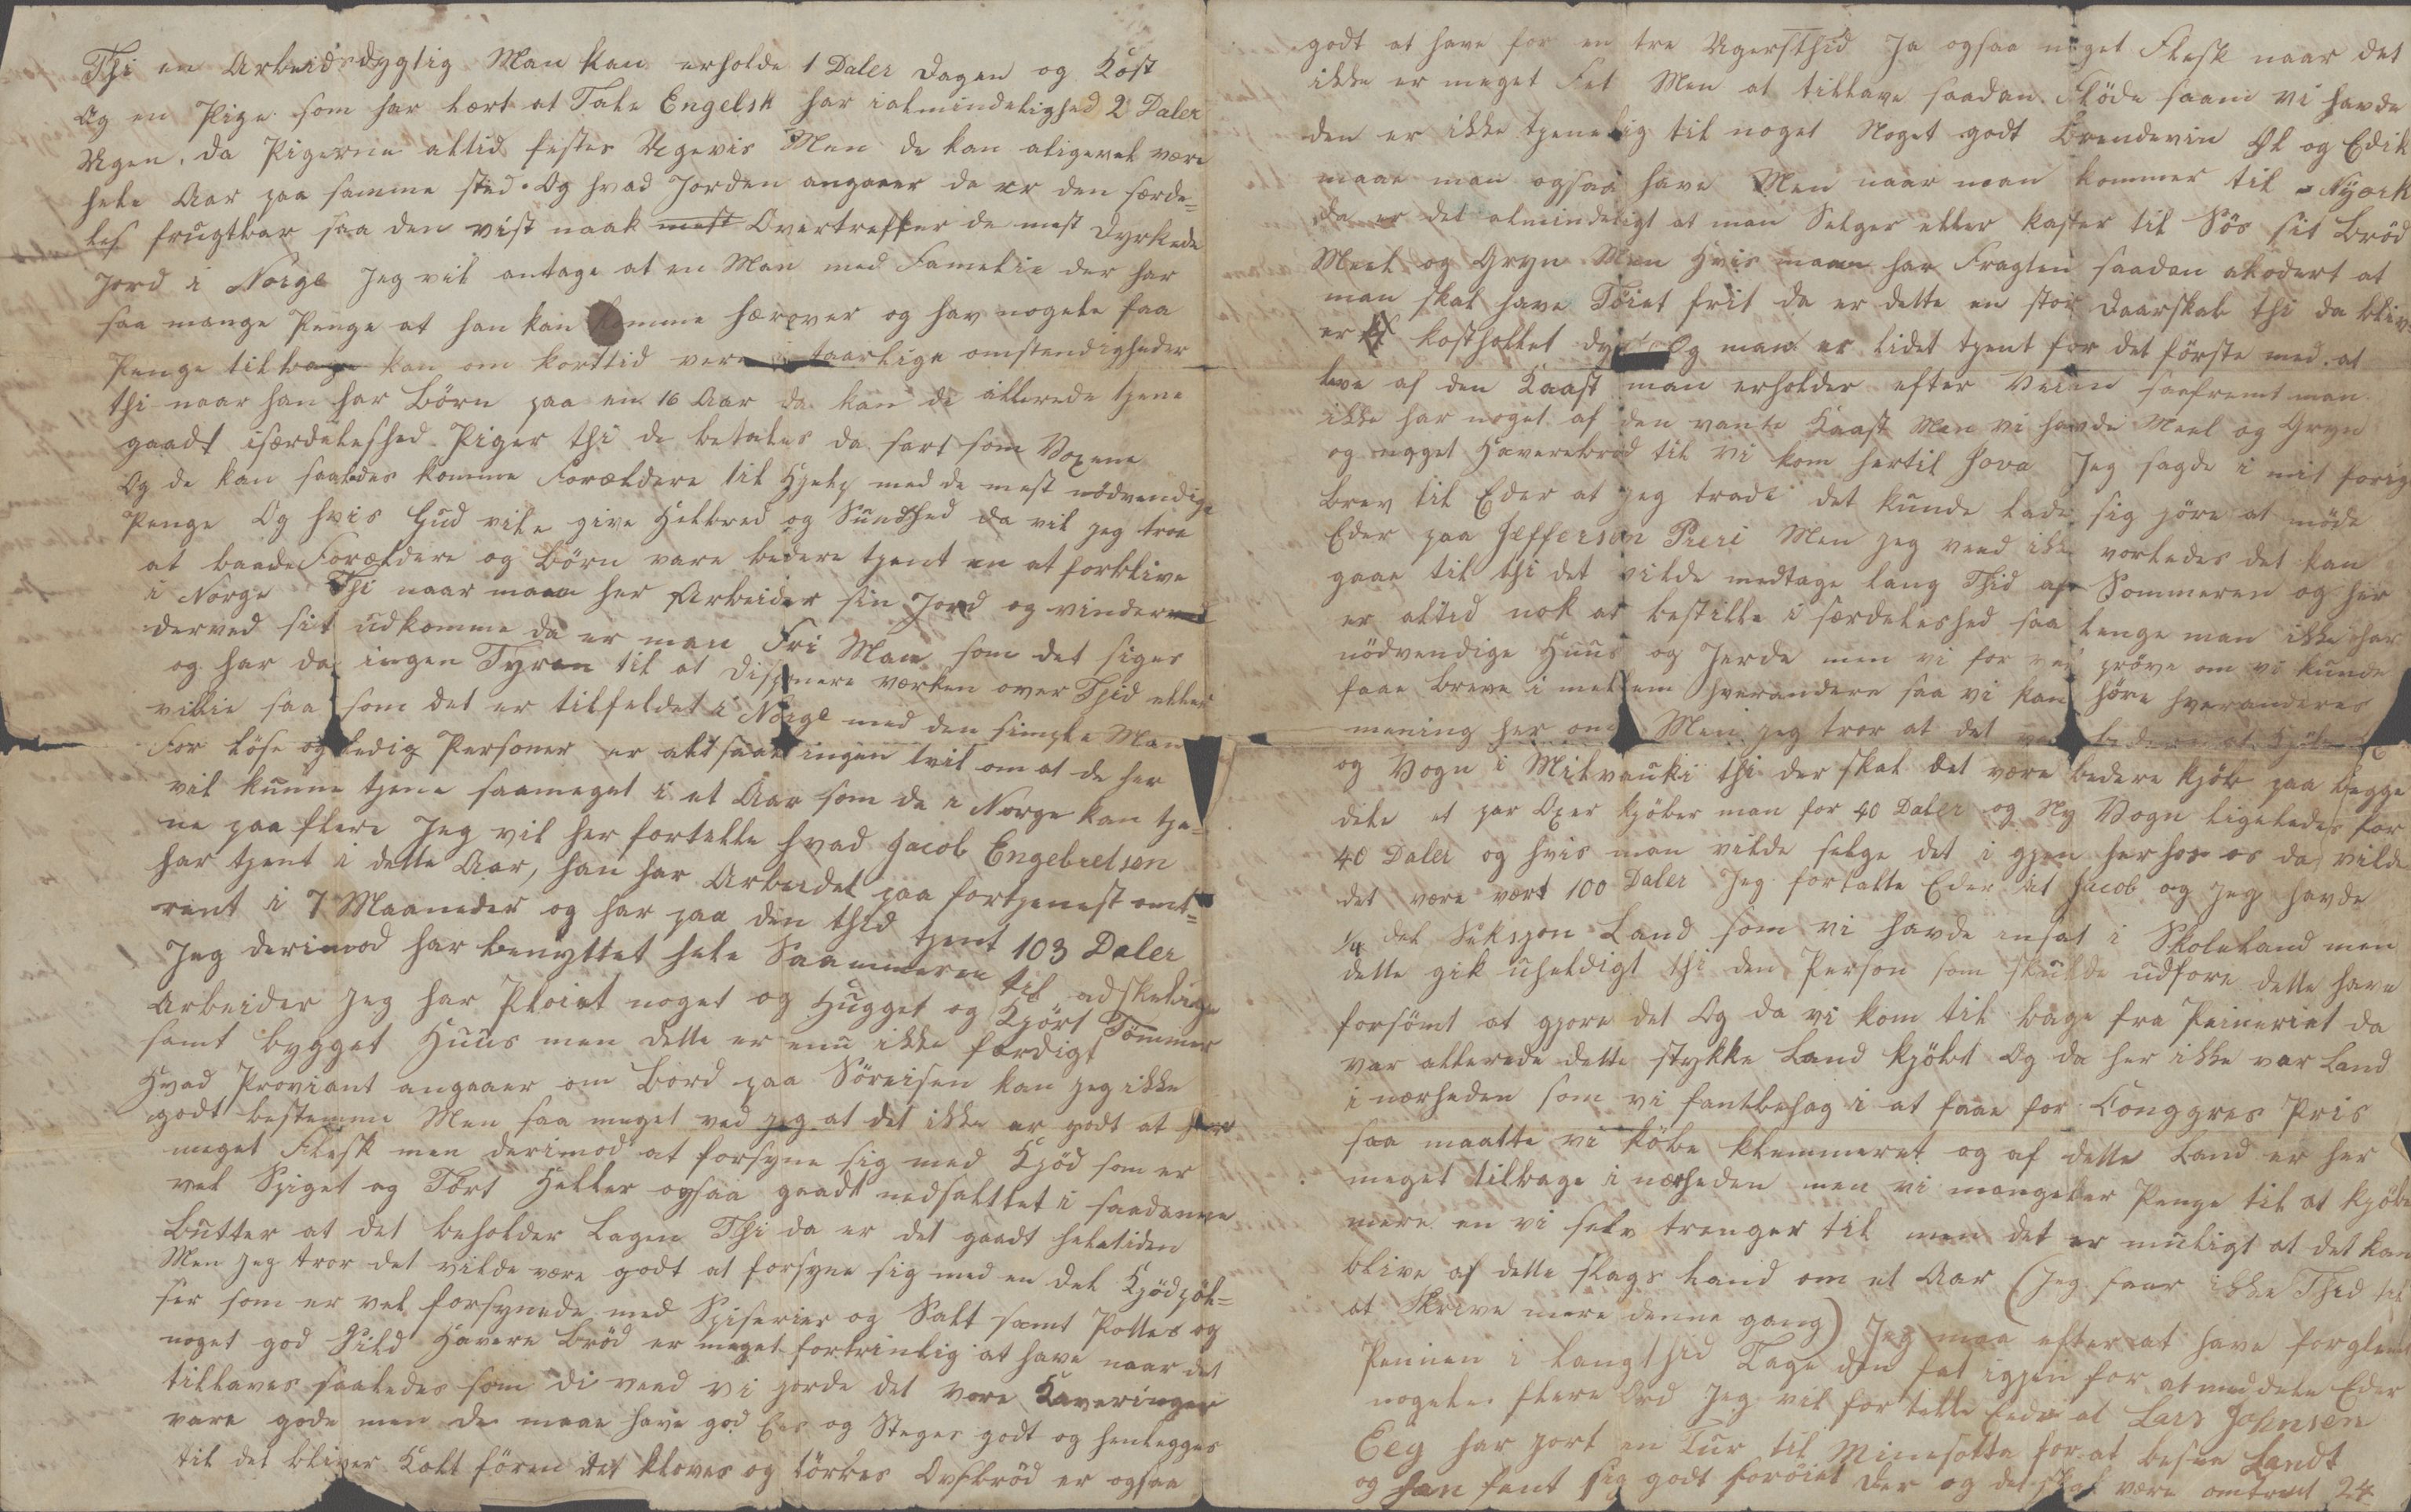 Thi en Arbeidsdygtig Man kan erholde 1 Daler Dagen og Kost
Og en Pige som har lært at Tale Engelsk har ialmindelighed 2 Daler
Ugen, da Pigerne altid festes Ugevis Men de kan aligevel være
hele Aar paa samme sted. Og hvad Jorden angaaer da er den særde=
les frugtbar saa den vist naak mest Overtreffer de mest Dyrkede
Jord i Norge Jeg vil antage at en Man med Famelie der har
saa mange Penge at han kan komme hærover og hav nogele faa
Penge tilbage kan om korttid vere i taarlige omstendigheder
thi naar han har Börn paa en 16 Aar da kan de allerede tjene
gaadt isærdeleshed Piger thi de betales da sart som Voxene
Og de kan saaledes komme Forældere til Hjelp med de mest nödvendige
Penge Og hvis Gud vile give Helbred og Sundhed da vil jeg troe
at baade Forældere og Börn vare bedere tjent en at forblive
i Norge Thi naar man her Arbeider sin Jord og vinder
derved sit udkomme da er man Fri Man som det siges
og har da ingen Tyran til at Disponere værken over Thid eller
villie saa som det er tilfeldet i Norge med den simple Man
For löse og ledig Personer er altsaa ingen tvil om at de her
vil kunne tjene saameget i et Aar som de i Norge kan tje=
ne paa flere Jeg vil her fortelle hvad Jacob Engebretsen
har tjent i dette Aar, han har Arbeidet paa fortjenest omt=
rent i 7 Maaneder og har paa den thid tjent 103 Daler
Jeg derimod har benyttet hele Saammeren til adskelige
Arbeider Jeg har Ploiet noget og Hugget og Kjört Tömmer
samt bygget Huus men dette er enu ikke færdigt
Hvad Proviant angaaer om Bord paa Söreisen kan jeg ikke
godt bestemme Men saa meget ved jeg at det ikke er godt at have
meget Flesk men derimod at forsyne sig med Kjöd som er
vel Spiget og Tört Heller ogsaa gaadt nedsaltet i saadanne
Butter at det beholder Lagen Thi da er det gaadt heletiden
Men jeg tror det vilde være godt at forsyne sig med en del Kjödpöl=
ser som er vel forsynede med Spiserier og Salt samt Pottes og
noget god Sild Havere Bröd er meget fortrinlig at have naar det
tillaves saaledes som Di veed vi gorde det vore Kavringer
vare gode men de maae have god Ees og Steges godt og henlegges
til det bliver Kalt fören det kloves og törkes Ovsbröd er ogsaa
godt at have for en tre Ugersthid Ja ogsaa noget Flesk naar det
ikke er meget Fet Men at tillave saadan Flöde saam vi havde
den er ikke tjenelig til noget Noget godt Brendevin Öl og Edik
maae man ogsaa have Men naar man kommer til Nyork
da er det almindeligt at man Selger eller kaster til Sös sit Bröd
Meel og Gryn Men Hvis man har Fragten saadan akodert at
man skal have Töiet frit da er dette en stor Daarskab thi da bliv=
er kostholdet dyrt Og man er lidet tjent for det förste med at
leve af den Kaast man erholder efter Veien saafremt man
ikke har noget af den vante Kaast Men vi havde Meel og Gryn
og noget Haverebröd til vi kom hertil Jova Jeg sagde i mit forige
brev til Eder at jeg trode det kunde lade sig göre at möde
Eder paa Jefferson Preri Men jeg veed ikke vorledes det kan
gaae til thi det vilde medtage lang Thid af Sommeren og her
er altid nok at bestille i særdeleshed saa lenge man ikke har
nödvendige Huus og Jerde men vi for vel pröve om vi kunde
faae breve i mellem hverandere saa vi kan höre hveranderes
mening her om Men jeg tror at det
og Vogn i Milvauki thi der skal det være bedere kjöb paa begge
dele et par Oxer kjöber man for 40 Daler og Ny Vogn ligeledes for
40 Daler og hvis man vilde selge det i gjen her hos os da vilde
det være vært 100 Daler Jeg fortalte Eder at Jacob og jeg havde
1/4 del Seksjon Land som vi havde ensat i Skoleland men
dette gik uheldigt thi den Person som skulde udfore dette have
forsömt at gjore det Og da vi kom til bage fra Peineriet da
var allerede dette stykke Land kjöbt Og da her ikke var Land
i nærheden som vi fantbehag i at faae for Conggres Pris
saa maatte vi köbe klemmeret og af dette Land er her
meget tilbage i nærheden men vi mangeler Penge til at kjöbe
mere en vi selv trenger til men det er muligt at det kan
blive af dette slags land om et Aar (Jeg faar ikke Thid til
at Skrive mere denne gang) Jeg maa efter at have forglemt
Pennen i langthid Tage den fat igjen for at meddele Eder
nogele flere Ord Jeg vil for telle Eder at Lars Johnsen
Eeg har gort en Tur til Minesotta for at besee Landt
og han fant sig godt foröiet Der og det skal være omtrent 24